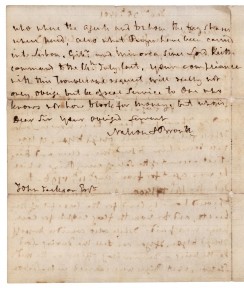 who where the agents and to whom the pay shares
were paid, also what Prizes has been carried
into Lisbon, Gibr. and Minorca since Lord Keith
command to the 14 July last, your compliance
with this troublesome request will really not
only oblige but be great Service to one who
knows not how to ask for money, but who is
Dear Sir Your obliged Servant
Nelson & Bronte
John Jackson Esqr